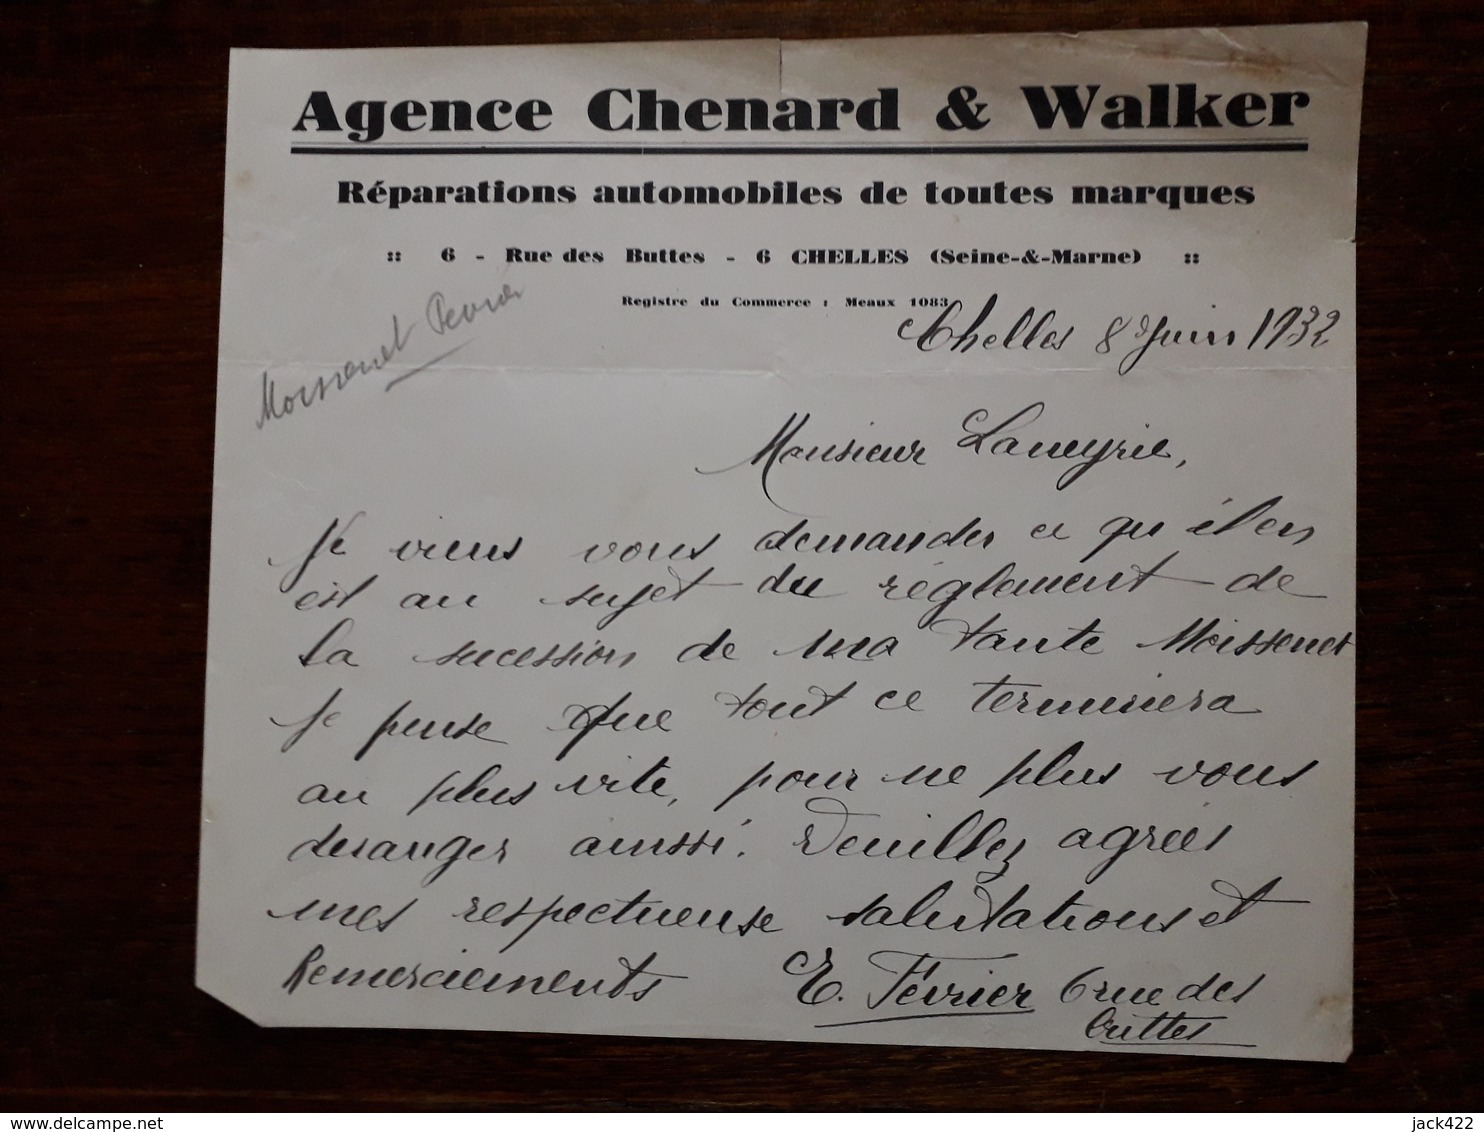 Agence Chenard & Walker
Réparations automobiles de toutes marques
:: 6 - Rue des Buttes - 6 CHELLES (Seine-&-Marne) ::
Registre du Commerce : Meaux 1083
Chelles 8 Juin 1932
Moissenet Fevrier
Monsieur Laneyrie,
Je viens vous demander ce qu il en
est au sujet du réglement de
la sucession de ma tante Moissenet
Je pense que tout ce terminera
au plus vite, pour ne plus vous
deranger ainssi. Veuillez agréer
mes respectueuse salutations et
Remerciements E. Février 6 rue des
Buttes
delcampe.net
jack422